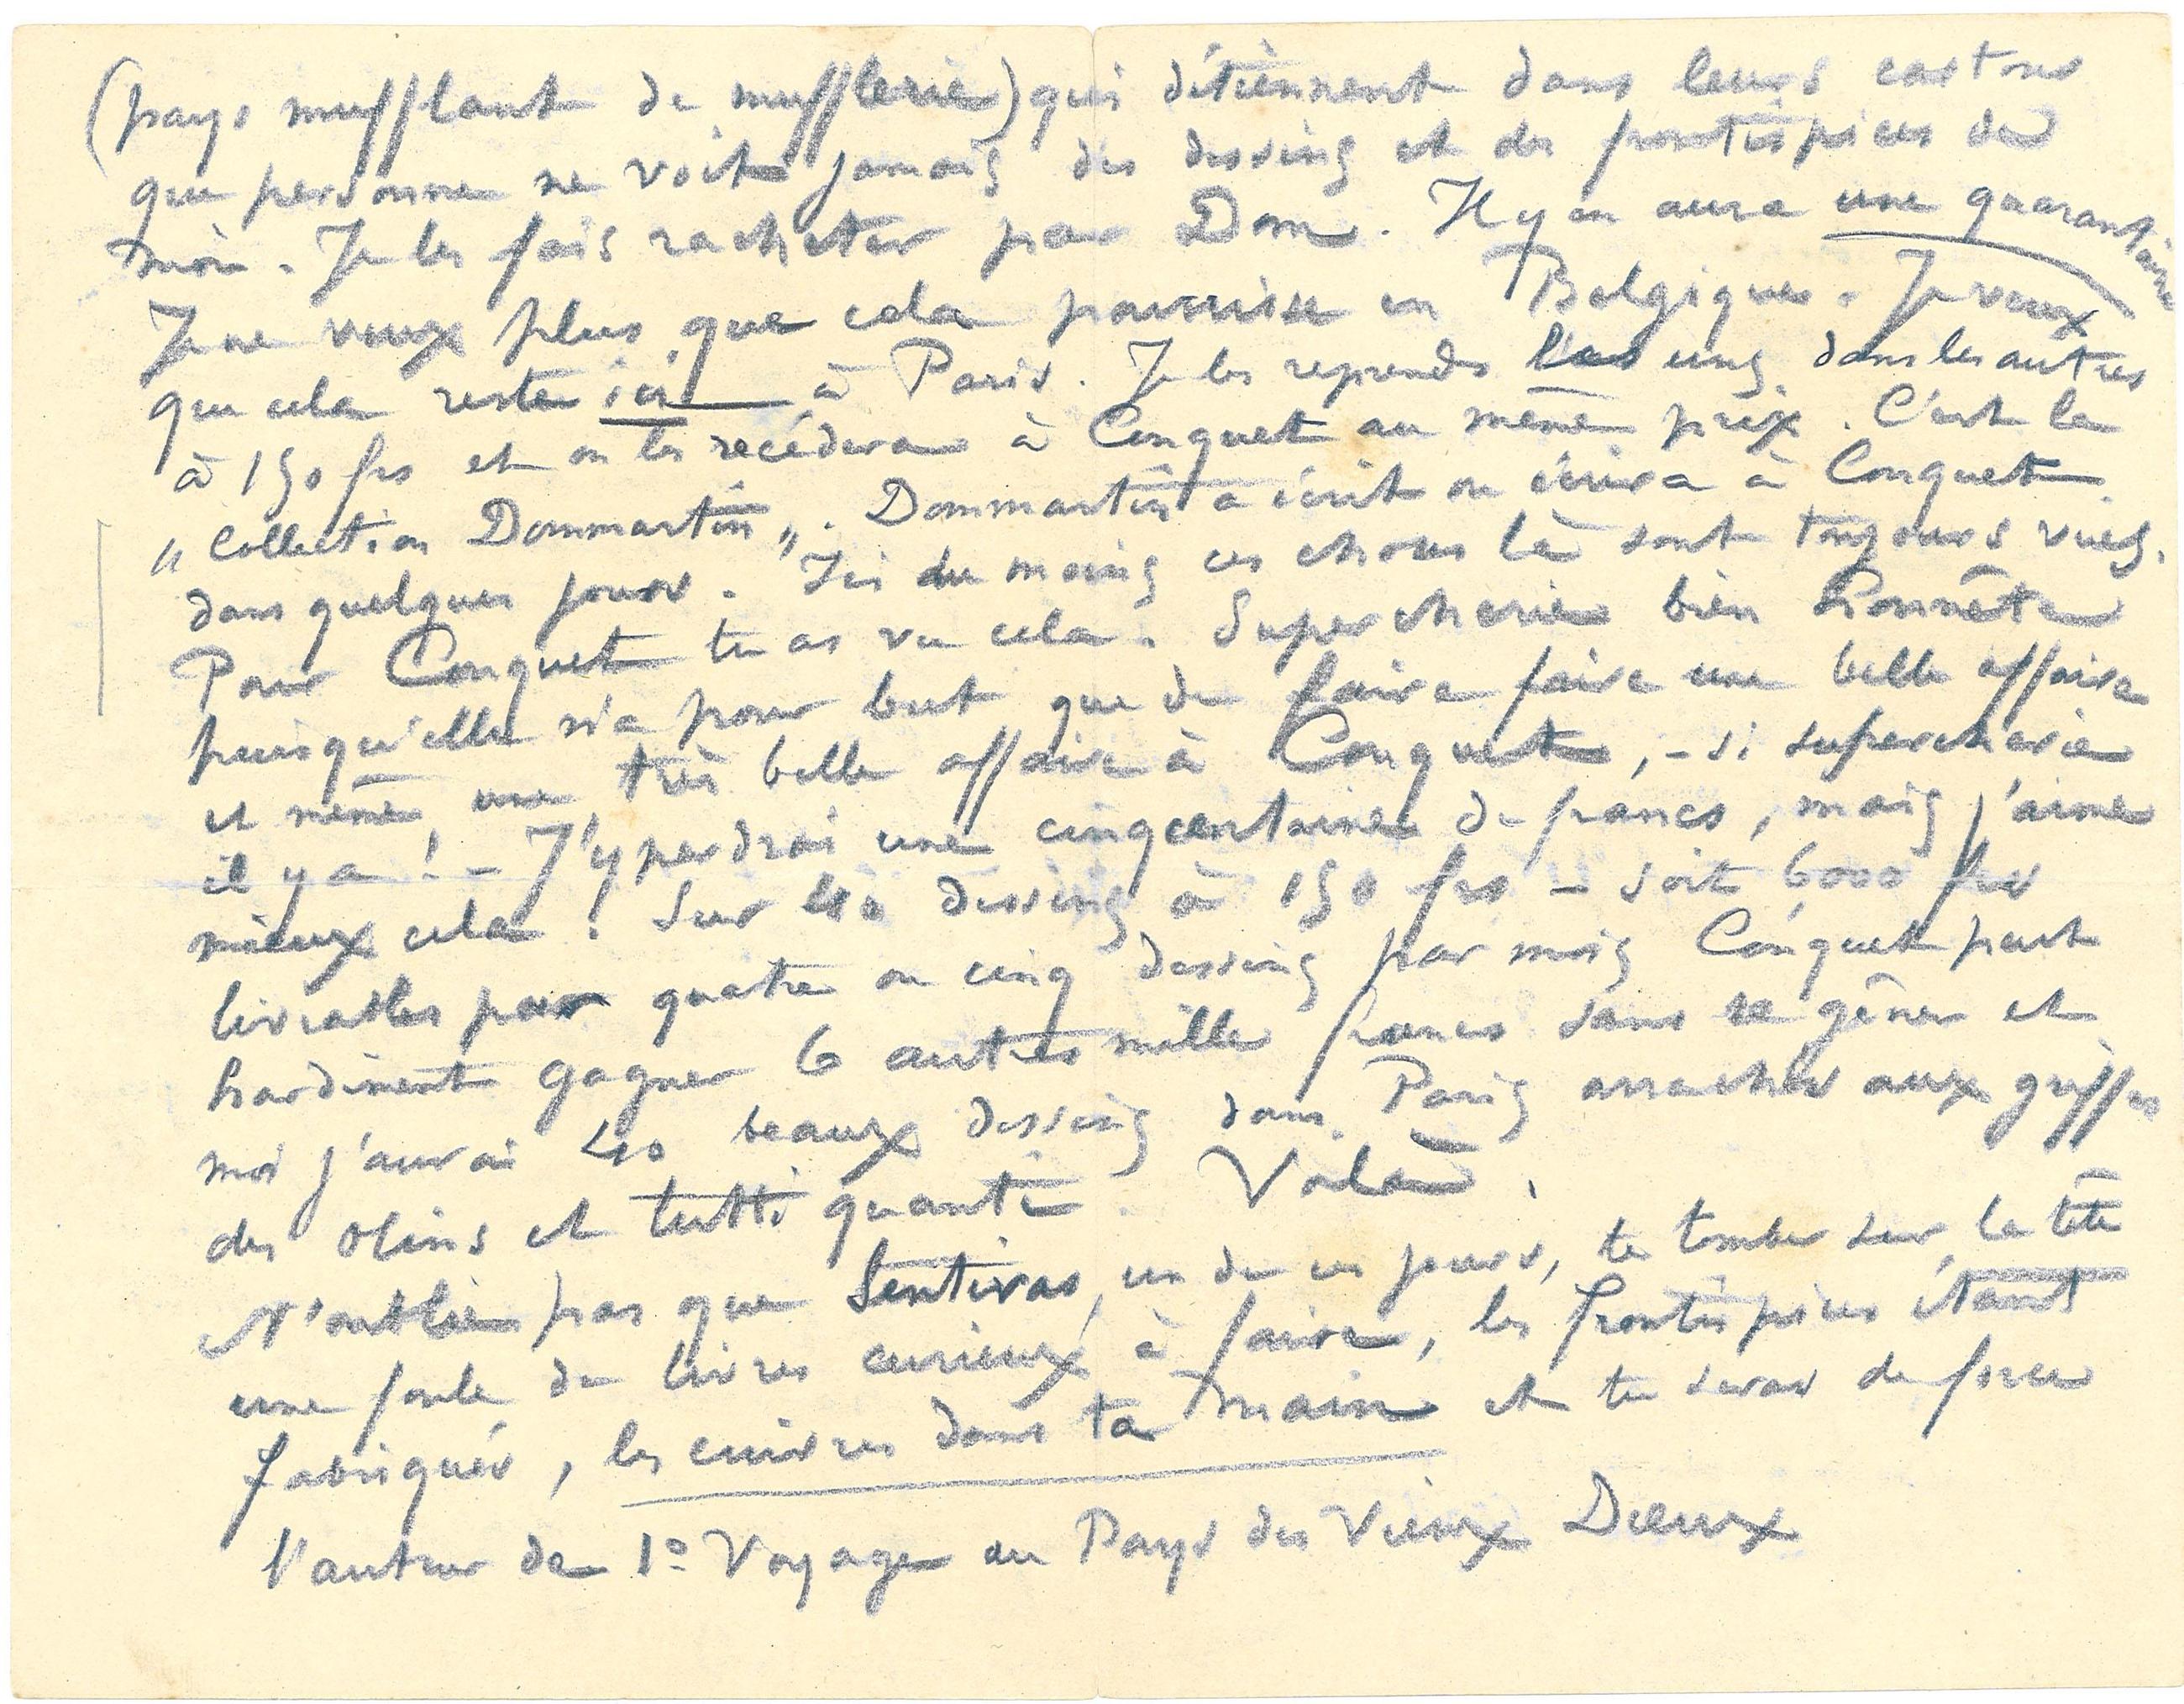 (pays mufflant de mufflerie) qui détiennent dans leurs cartons
que personne ne voit jamais des dessins et des frontispices de
moi. Je les fais racheter par Dom. Il y en aura une quarantaine
Je ne veux plus que cela pourrisse en Belgique. Je veux
que cela reste ici à Paris. Je les reprends les uns dans les autres
à 150 frs et on les recédera à Conquet au même prix. C'est la
"Collection Dommartin". Dommartin a écrit ou écrira à Conquet
dans quelques jours. Ici du moins ces choses là sont toujours vues.
Pour Conquet tu as vu cela. Supercherie bien honnête
puisqu'elle n'a pour but que de faire faire une belle affaire
et même une très belle affaire à Conquet, - si supercherie
il y a ! - J'y perdrai une cinqcentaine de francs, mais j'aime
mieux cela ! Sur 40 dessins à 150 frs - soit 6000 frs
livrables par quatre ou cinq dessins par mois Conquet peut
hardiment gagner 6 autres mille francs sans se gêner et
moi j'aurai 40 beaux dessins dans Paris arrachés aux griffes
des Olins et tutti quanti. Voilà.
N'oublie pas que sentiras, un de ces jours, te tomber sur la tête
une foule de livres curieux à faire, les frontispices étant
fabriqués, les cuivres dans ta main et tu seras de force
l'auteur de 1º Voyage au Pays des Vieux Dieux